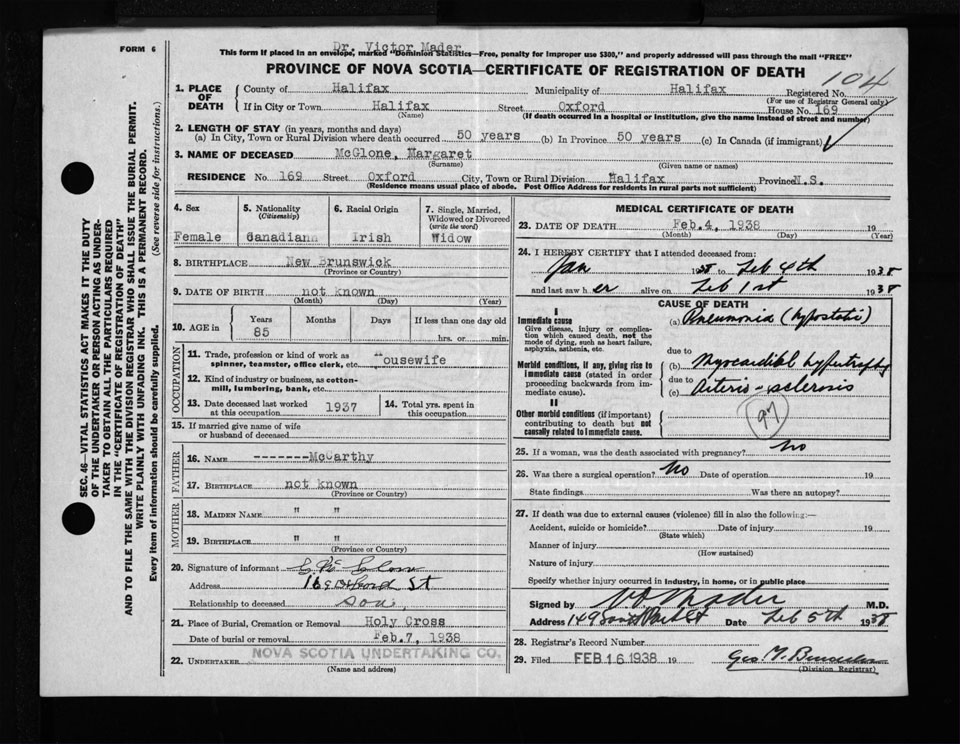 FORM 6
Dr. Victor Mader
This form if placed in an envelope, marked "Dominion Statistics—Free, penalty for improper use $300," and properly addressed will pass through the mail "FREE"
PROVINCE OF NOVA SCOTIA—CERTIFICATE OF REGISTRATION OF DEATH
104
1. PLACE OF DEATH County of Halifax Municipality of Halifax Registered No.
(For use of Registrar General only)
If in City or Town Halifax Street Oxford House No. 169
(Name) (If death occurred in a hospital or institution, give the name instead of street and number)
2. LENGTH OF STAY (in years, months and days)
(a) In City, Town or Rural Division where death occurred 50 years (b) In Province 50 years (c) In Canada (if immigrant)
3. NAME OF DECEASED McGlone, Margaret
(Surname) (Given name or names)
RESIDENCE No 169 Street Oxford City, Town or Rural Division Halifax Province N.S.
(Residence means usual place of abode. Post Office Address for residents in rural parts not sufficient)
4. Sex 5. Nationality (Citizenship) 6. Racial Origin 7. Single, Married, Widowed or Divorced (write the word)
Female Canadian Irish Widow
8. BIRTHPLACE New Brunswick
(Province or Country)
9. DATE OF BIRTH not known
(Month) (Day) (Year)
10. AGE in Years Months Days If less than one day old
85 hrs. or min.
OCCUPATION
11. Trade, profession or kind of work as spinner, teamster, office clerk, etc. Housewife
12. Kind of industry or business, as cotton-mill, lumbering, bank, etc.
13. Date deceased last worked at this occupation 1937 14. Total yrs. spent in this occupation
15. If married give name of wife or husband of deceased
FATHER
16. Name --------McCarthy
17. Birthplace not known
(Province or Country)
MOTHER
18. Maiden Name " "
19. Birthplace " "
(Province or Country)
20. Signature of informant
Address 169 Oxford St
Relationship to deceased son,
21. Place of Burial, Cremation or Removal Holy Cross
Date of burial or removal Feb.7, 1938
22. Undertaker NOVA SCOTIA UNDERTAKING CO.
(Name and address)
MEDICAL CERTIFICATE OF DEATH
23. DATE OF DEATH Feb.4, 1938
(Month) (Day) (Year)
24. I HEREBY CERTIFY that I attended deceased from:
Jan 1938 to Feb 4th 1938
and last saw her alive on Feb 1st 1938
CAUSE OF DEATH
I
Immediate cause (a) Pneumonia (hypostatic)
Give disease, injury or complication which caused death, not the mode of dying, such as heart failure, asphyxia, asthenia, etc.
due to
Morbid conditions, if any, giving rise to immediate cause (stated in order proceeding backwards from immediate cause). (b) Myocardial hypertrophy
due to
(c) Arterio-sclerosis
II
Other morbid conditions (if important) contributing to death but not causally related to immediate cause.
97
25. If a woman, was the death associated with pregnancy? no
26. Was there a surgical operation? No Date of operation 19
State findings Was there an autopsy?
27. If death was due to external causes (violence) fill in also the following:—
Accident, suicide or homicide? Date of injury 19
(State which)
Manner of injury
(How sustained)
Nature of injury
Specify whether injury occurred in industry, in home, or in public place
Signed by V. Mader M.D.
Address Date Feb 5th 1938
28. Registrar's Record Number
29. Filed FEB 16 1938 19
(Division Registrar)
SEC. 46—VITAL STATISTICS ACT MAKES IT THE DUTY
OF THE UNDERTAKER OR PERSON ACTING AS UNDER-
TAKER TO OBTAIN ALL THE PARTICULARS REQUIRED
IN THE "CERTIFICATE OF REGISTRATION OF DEATH"
AND TO FILE THE SAME WITH THE DIVISION REGISTRAR WHO SHALL ISSUE THE BURIAL PERMIT.
WRITE PLAINLY WITH UNFADING INK. THIS IS A PERMANENT RECORD.
Every item of information should be carefully supplied. (See reverse side for instructions.)